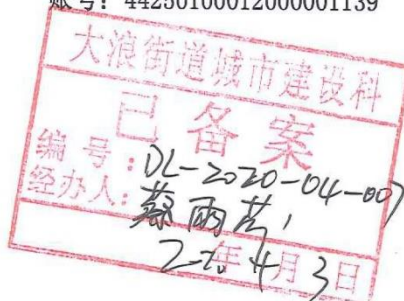 账号: 44250100012000001139
大浪街道城市建设科
已备案
编号: DL-2020-04-007
经办人: 蔡雨芸
2020年4月3日